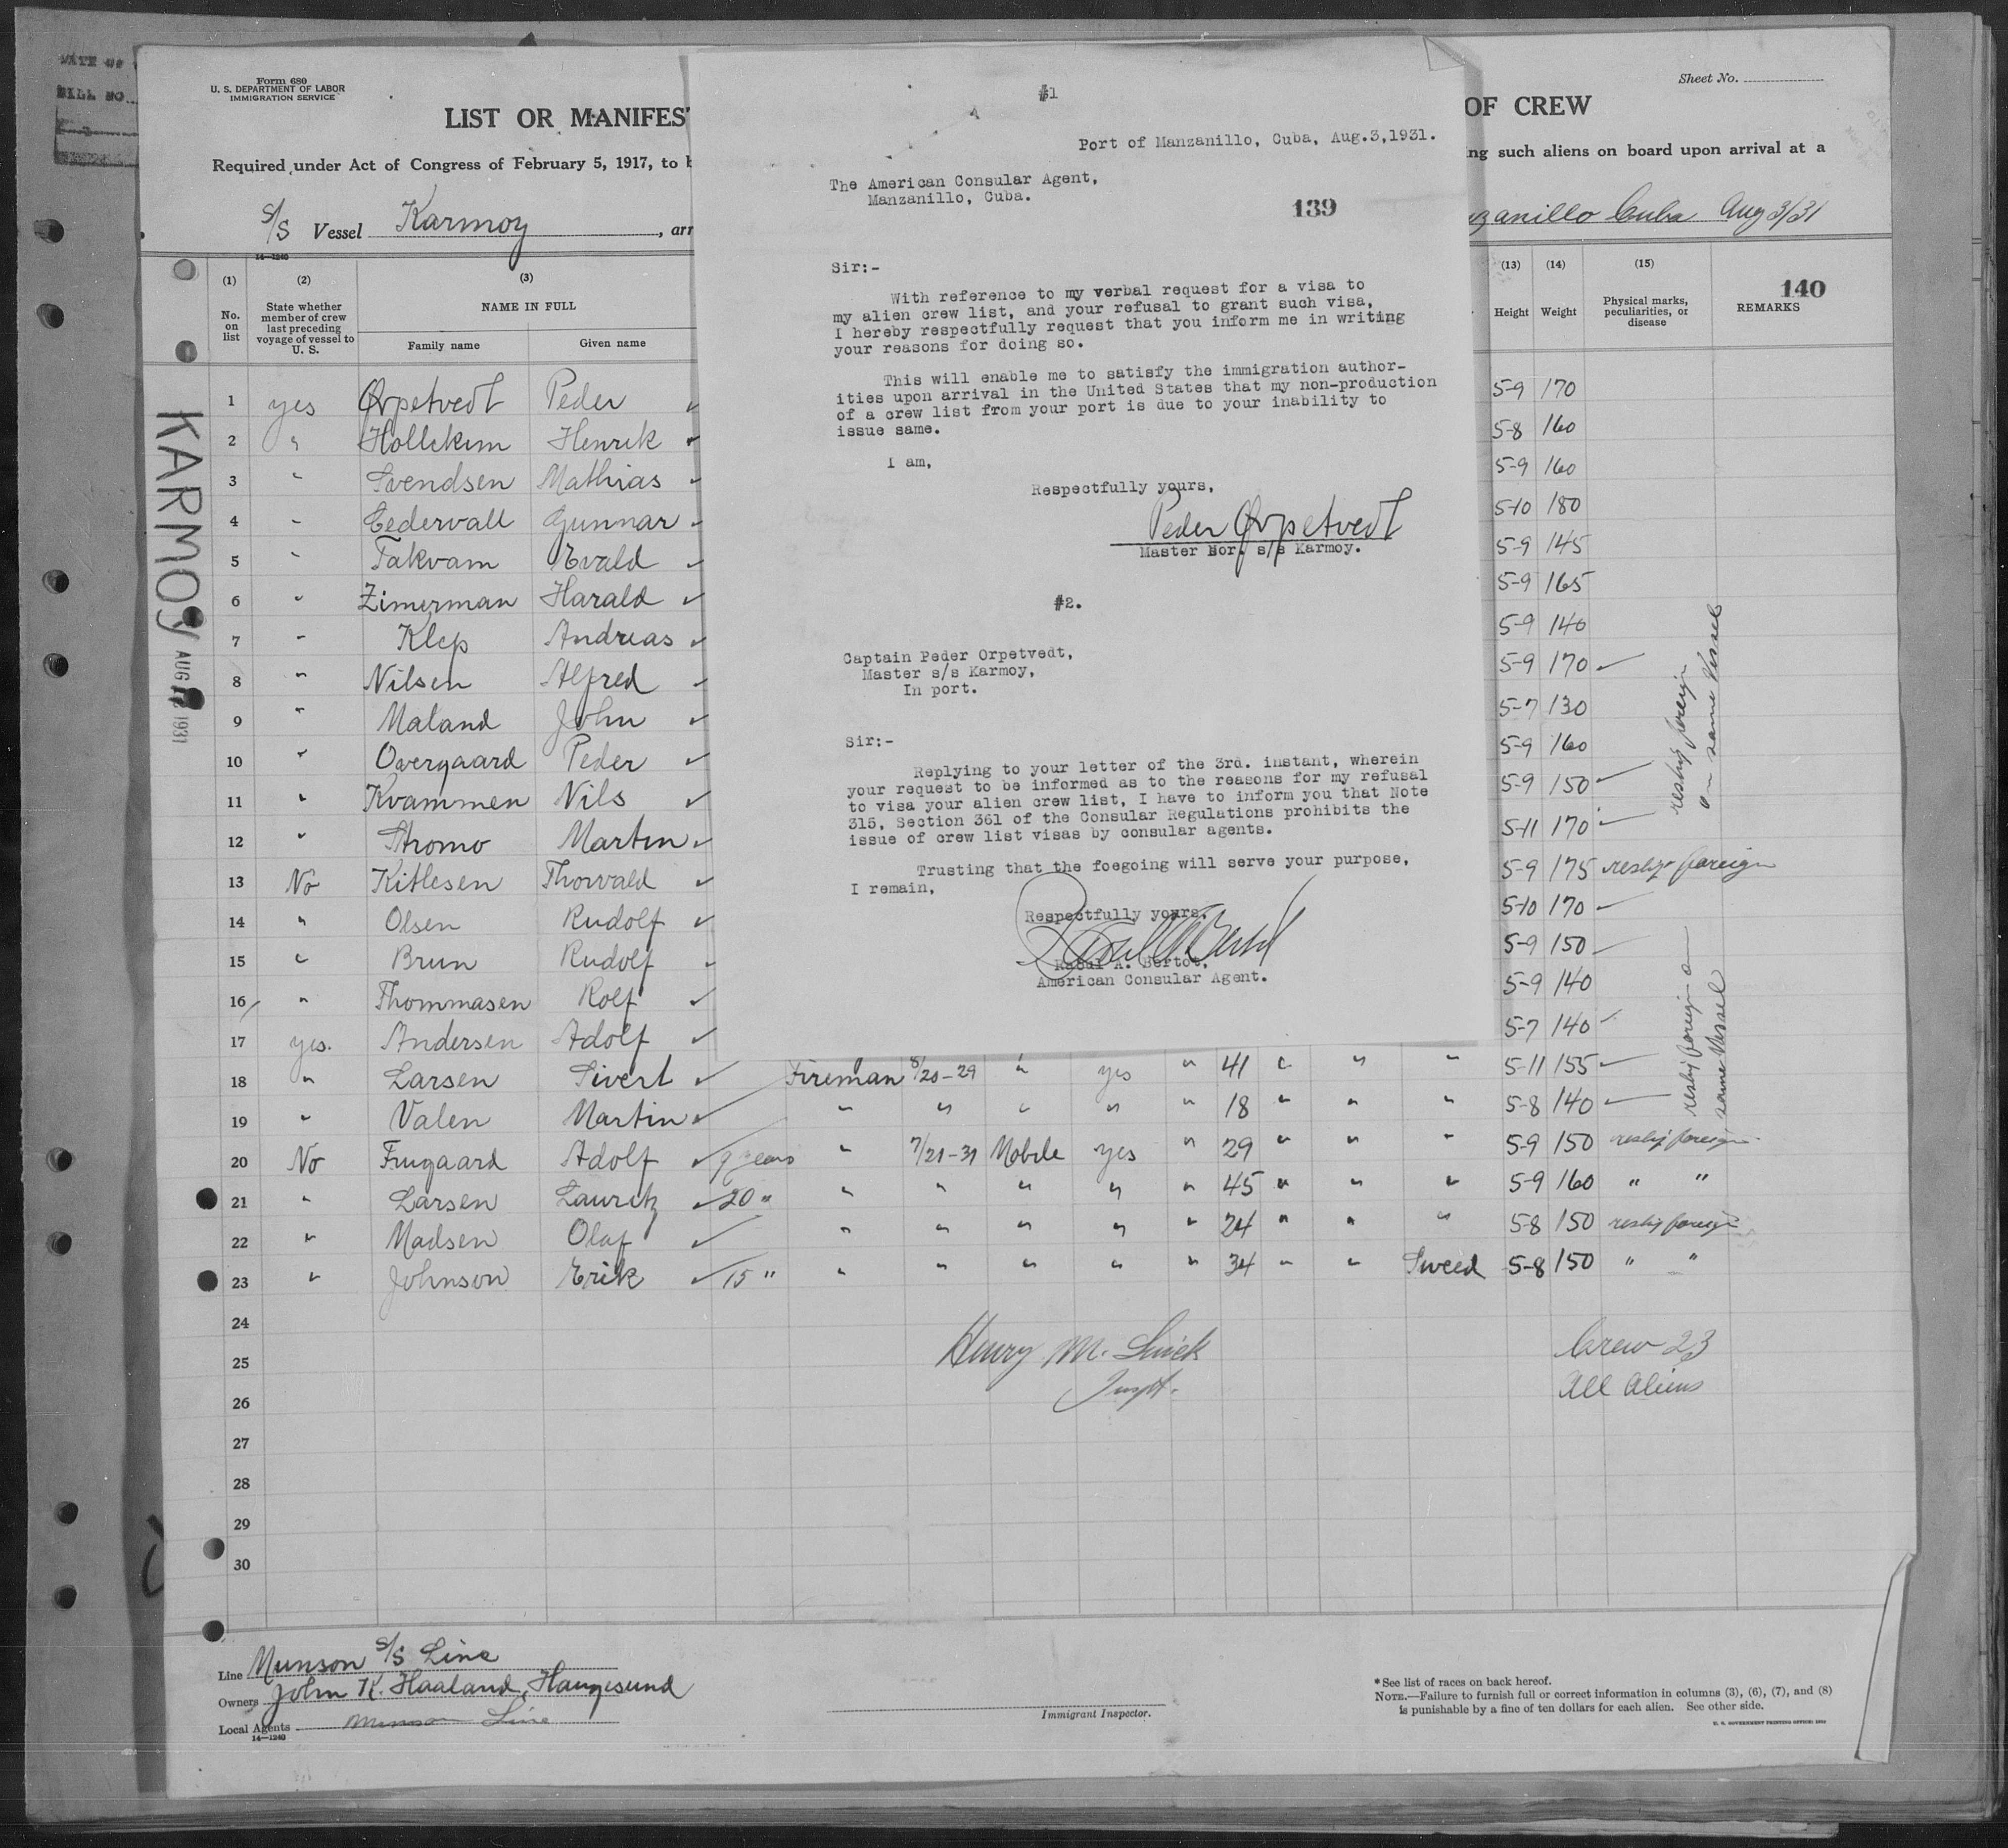 DATE OF
BILL NO.
Form 680
U. S. DEPARTMENT OF LABOR
IMMIGRATION SERVICE
Sheet No.
LIST OR MANIFES
OF CREW
Required under Act of Congress of February 5, 1917, to b
ing such aliens on board upon arrival at a
S/S Vessel Karmoy, arr
zanillo Cuba Aug 3/31
14—1240
140
(1) (2) (3) (13) (14) (15)
No. on list
State whether member of crew last preceding voyage of vessel to U. S.
NAME IN FULL
Family name Given name
Height Weight
Physical marks, peculiarities, or disease
REMARKS
KARMOY
AUG 1931
1 yes Orpetvedt Peder ✓ 5-9 170
2 " Hollekim Henrik ✓ 5-8 160
3 " Svendsen Mathias ✓ 5-9 160
4 " Cedervall Gunnar ✓ 5-10 180
5 " Takvam Evald ✓ 5-9 145
6 " Zimerman Harald ✓ 5-9 165
7 " Klep Andreas ✓ 5-9 140
8 " Nilsen Alfred ✓ 5-9 170
9 " Maland John ✓ 5-7 130
10 " Overgaard Peder ✓ 5-9 160
11 " Kvammen Nils ✓ 5-9 150
12 " Stromo Martin ✓ 5-11 170
reship foreign
on same Vessel
13 No Kitlesen Thorvald ✓ 5-9 175 reship foreign
14 " Olsen Rudolf ✓ 5-10 170
15 " Brun Rudolf ✓ 5-9 150
16 " Thommasen Rolf ✓ 5-9 140
17 yes. Andersen Adolf ✓ 5-7 140
18 " Larsen Sivert ✓ Fireman 8/20-29 " yes " 41 " " " 5-11 155
19 " Valen Martin ✓ " " " " " 18 " " " 5-8 140
reship foreign on
same Vessel
20 No Frugaard Adolf ✓ 9 years " 7/21-31 Mobile yes " 29 " " " 5-9 150 reship foreign
21 " Larsen Lauritz ✓ 20 " " " " " " 45 " " " 5-9 160 " "
22 " Madsen Olaf ✓ " " " " " 24 " " " 5-8 150 reship foreign
23 " Johnson Erik ✓ 15 " " " " " " 34 " " Sweed 5-8 150 " "
24
25
26
27
28
29
30
Henry M.
Inspt.
Crew 23
All Aliens
Line Munson S/S Line
Owners John K. Haaland, Haugesund
Local Agents Munson Line
14—1240
Immigrant Inspector.
*See list of races on back hereof.
NOTE.—Failure to furnish full or correct information in columns (3), (6), (7), and (8)
is punishable by a fine of ten dollars for each alien. See other side.
#1
Port of Manzanillo, Cuba, Aug.3,1931.
The American Consular Agent,
Manzanillo, Cuba.
139
Sir:-
With reference to my verbal request for a visa to
my alien crew list, and your refusal to grant such visa,
I hereby respectfully request that you inform me in writing
your reasons for doing so.
This will enable me to satisfy the immigration author-
ities upon arrival in the United States that my non-production
of a crew list from your port is due to your inability to
issue same.
I am,
Respectfully yours,
Peder Orpetvedt
Master Nor. s/s Karmoy.
#2.
Captain Peder Orpetvedt,
Master s/s Karmoy,
In port.
Sir:-
Replying to your letter of the 3rd. instant, wherein
your request to be informed as to the reasons for my refusal
to visa your alien crew list, I have to inform you that Note
315, Section 361 of the Consular Regulations prohibits the
issue of crew list visas by consular agents.
Trusting that the foegoing will serve your purpose,
I remain,
Respectfully yours,
Raoul A. Bertot,
American Consular Agent.